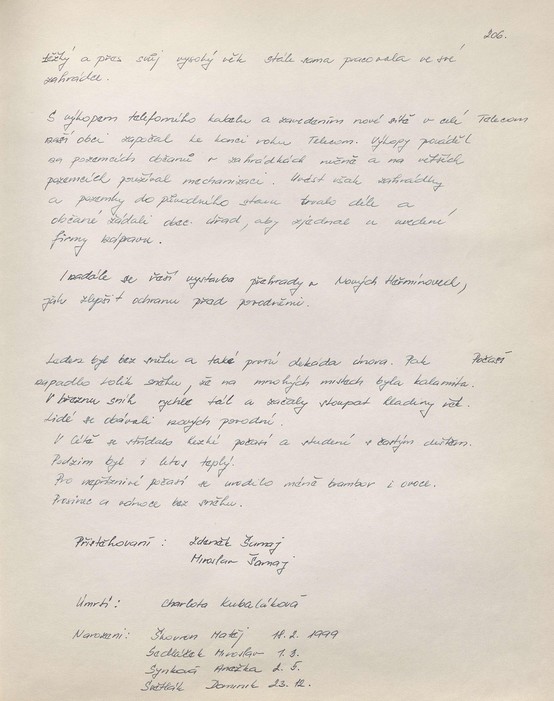 206.
těžký a přes svůj vysoký věk stále sama pracovala ve své
zahrádce.
S výkopem telefonního kabelu a zavedením nové sítě v celé Telecom
naší obci započal ke konci roku Telecom. Výkopy prováděl
na pozemcích občanů v zahrádkách ručně a na větších
pozemcích používal mechanizaci. Uvést však zahrádky
a pozemky do původního stavu trvalo déle a
občané žádali obec. úřad, aby zjednal u uvedené
firmy nápravu.
I nadále se řeší výstavba přehrady v Nových Heřminovech,
jako zlepšit ochranu před povodněmi.
Leden byl bez sněhu a také první dekáda února. Pak Počasí
napadlo tolik sněhu, že na mnohých místech byla kalamita.
V březnu sníh rychle tál a začaly stoupat hladiny řek.
Lidé se obávali nových povodní.
V létě se střídalo hezké počasí a studené s častým deštěm.
Podzim byl i letos teplý.
Pro nepříznivé počasí se urodilo méně brambor i ovoce.
Prosinec a vánoce bez sněhu.
Přistěhovaní: Zdeněk Šamaj
Miroslav Šamaj
Úmrtí: Charlota Kubaláková
Narození: Škovron Matěj 18.2. 1999
Sedláček Miroslav 1.3.
Synková Anežka 2.5.
Světlák Dominik 23.12.